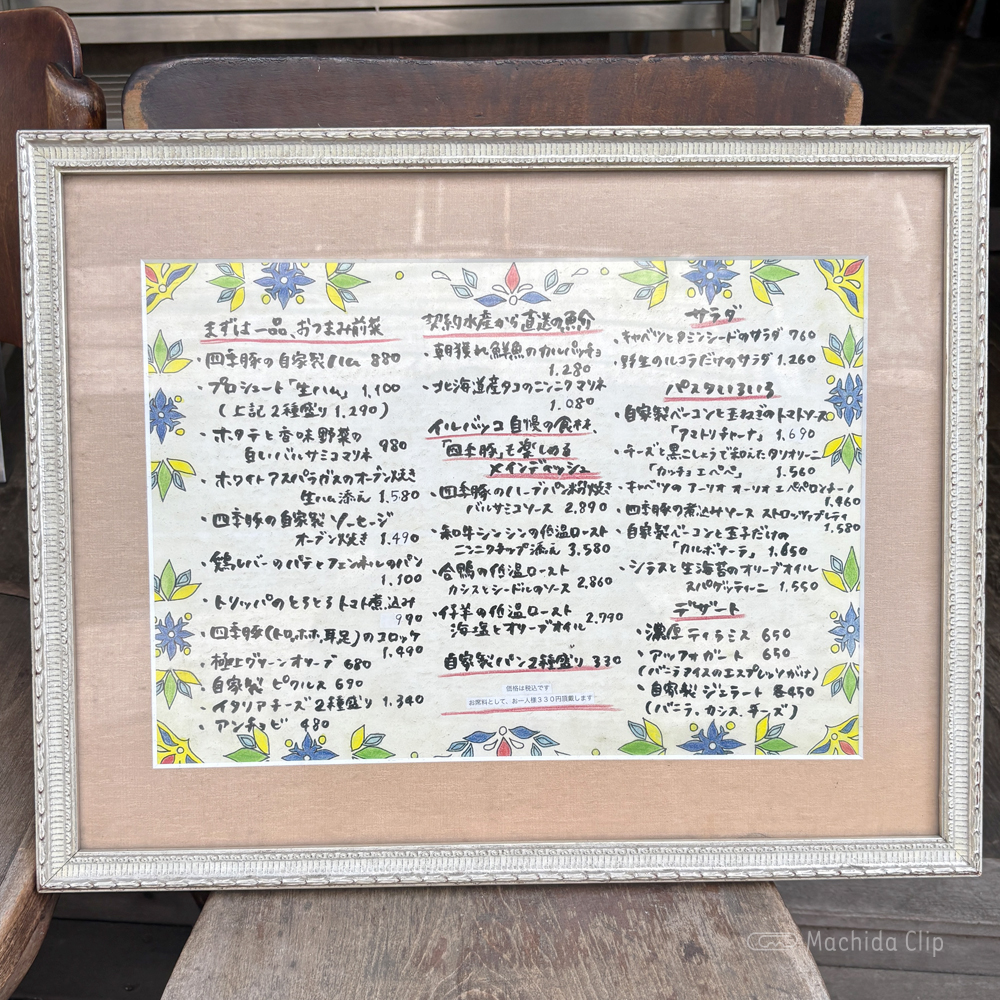 まずは一品、おつまみ前菜
・四季豚の自家製ハム 880
・プロシュート「生ハム」 1,100
(上記2種盛り 1.290)
・ホタテと香味野菜の
白いバルサミコマリネ 980
・ホワイトアスパラガスのオーブン焼き
生ハム添え 1.580
・四季豚の自家製 ソーセージ
オーブン焼き 1.490
・鶏レバーのパテとフェンネルのパン
1.100
・トリッパのとろとろトマト煮込み
990
・四季豚(トロ,ホホ,耳,足)のコロッケ
1.490
・極上グリーンオリーブ 680
・自家製 ピクルス 690
・イタリアチーズ2種盛り 1.340
・アンチョビ 480
契約水産から直送の魚介
・朝獲れ鮮魚のカルパッチョ
1.280
・北海道産タコのニンニクマリネ
1.080
イルバッコ自慢の食材、
「四季豚」も楽しめる
メインディッシュ
・四季豚のハーブパン粉焼き
バルサミコソース 2,890
・和牛シンシンの低温ロースト
ニンニクチップ添え 3.580
・合鴨の低温ロースト
カシスとシードルのソース 2,860
・仔羊の低温ロースト
海塩とオリーブオイル 2.790
自家製パン2種盛り 330
価格は税込です
お席料として、お一人様330円頂戴します
サラダ
・キャベツとクミンシードのサラダ 760
・野生のルコラだけのサラダ 1.260
パスタいろいろ
・自家製ベーコンと玉ねぎのトマトソース
「アマトリチャーナ」 1.690
・チーズと黒こしょうで和えたタリオリーニ
「カッチョエペペ」 1.560
・キャベツのアーリオオーリオエペペロンチーノ
1.460
・四季豚の煮込みソース ストロッツァプレティ
1.580
・自家製ベーコンと玉子だけの
「カルボナーラ」 1.650
・シラスと生海苔のオリーブオイル
スパゲッティーニ 1.550
デザート
・濃厚ティラミス 650
・アッフォガート 650
(バニラアイスのエスプレッソがけ)
・自家製ジェラート 各450
(バニラ、カシス、チーズ)
Machida Clip